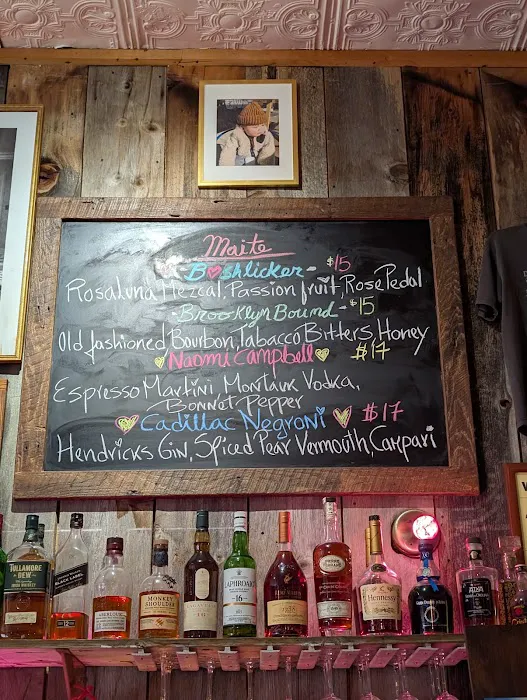 Maite
Boshlicker - $15
Rosaluna Mezcal, Passion fruit, Rose Pedal
- Brooklyn Bound - $15
Old fashioned Bourbon, Tabacco Bitters, Honey
Naomi Campbell $17
Espresso Martini Montauk Vodka,
Bonnet Pepper
Cadillac Negroni $17
Hendricks Gin, Spiced Pear Vermouth, Campari
TULLAMORE
DEW
BLACK LABEL
12
MONKEY
SHOULDER
LAPHROAIG
16
1738
Hennessy